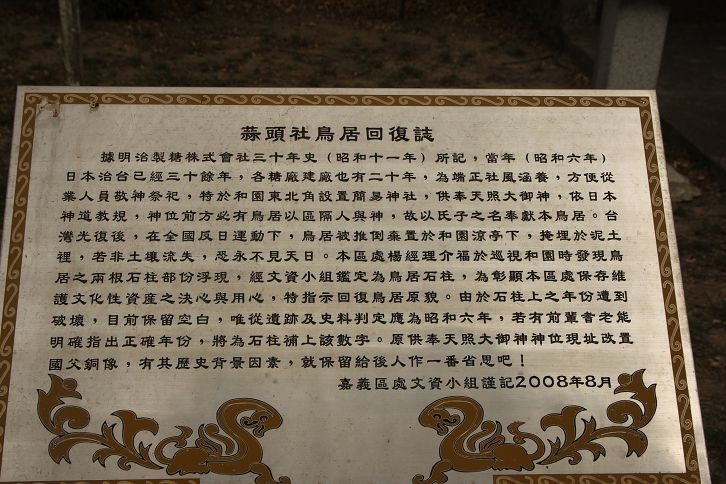 蒜頭社鳥居回復誌
據明治製糖株式會社三十年史(昭和十一年)所記,當年(昭和六年)
日本治台已經三十餘年,各糖廠建廠也有二十年,為端正社風涵養,方便從
業人員敬神祭祀,特於和園東北角設置簡易神社,供奉天照大御神,依日本
神道教規,神位前方必有鳥居以區隔人與神,故以氏子之名奉獻本鳥居。台
灣光復後,在全國反日運動下,鳥居被推倒棄置於和園涼亭下,掩埋於泥土
裡,若非土壤流失,恐永不見天日。本區處楊經理介福於巡視和園時發現鳥
居之兩根石柱部份浮現,經文資小組鑑定為鳥居石柱,為彰顯本區處保存維
護文化性資產之決心與用心,特指示回復鳥居原貌。由於石柱上之年份遭到
破壞,目前保留空白,唯從遺跡及史料判定應為昭和六年,若有前輩耆老能
明確指出正確年份,將為石柱補上該數字。原供奉天照大御神神位現址改置
國父銅像,有其歷史背景因素,就保留給後人作一番省思吧!
嘉義區處文資小組謹記2008年8月